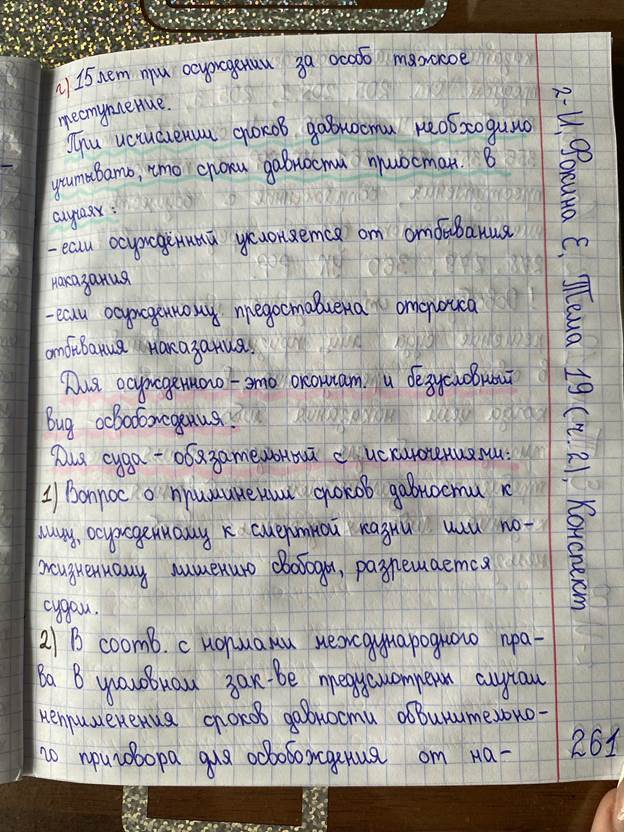 г) 15 лет при осуждении за особо тяжкое
преступление.
При исчислении сроков давности необходимо
учитывать, что сроки давности приостан. в
случаях:
- если осуждённый уклоняется от отбывания
наказания
- если осужденному предоставлена отсрочка
отбывания наказания.
Для осужденного - это окончат. и безусловный
вид освобождения.
Для суда - обязательный с исключениями:
1) Вопрос о приминении сроков давности к
лицу, осужденному к смертной казни или по-
жизненному лишению свободы, разрешается
судом.
2) В соотв. с нормами международного пра-
ва в уголовном зак-ве предусмотрены случаи
неприменения сроков давности обвинительно-
го приговора для освобождения от на-
2-И, Фокина Е, Тема 19 (ч. 2), Конспект
261